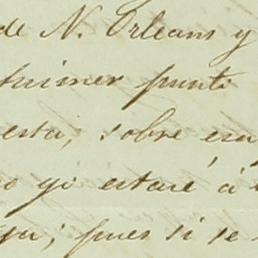 de N. Orleans y
primer punto
esta, sobre
yo estaré á
pues si se